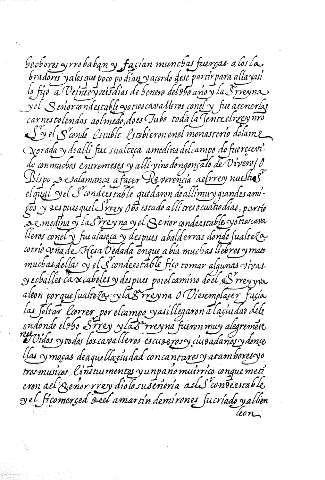 hechores y rrobaban y façian munchas fuerças a los la
bradores y a los que poco podian y acordo de se partir para alla y asi
lo fiço a Veinte y seis dias de henero del dho año y la Rreyna
y el Señor condestable y otros cavalleros con el y fue a tener las
carnestolendas a olmedo, donde Tubo toda la Jente el rrey nro
Sr y el Sr conde stable Estubieron en el monasterio de la me
xorada y de alli fue su alteça a medina del campo do fue rreçevi
do con muchos entremeses y alli vino don gonçalo de Vivero, O
Bispo de salamanca a façer Reverençia a el rrey nuestro Sr
el qual y el Sr condestable quedaron de alli muy grandes ami
gos y despues quel Srrey Ubo estado alli tres o cuatro dias, partio
de medina y la Srreyna y el Señor condestable y otros cava
lleros con el y fue a la caça y despues a balderras donde su alteza
corrio una de Caça Vedada en que abia muchas liebres y mato
muchas dellas y el Sr condestable fiço tomar algunas vivas
y echallas cascabeles y despues por el camino de el Srrey yva
a leon porque su alteza y la Srreyna O Viesen plaçer facia
las soltar y correr por el campo y asi llegaron a la çiudad de le
on donde el dho Srrey y la Srreyna fueron muy alegremente
rreçeVidos y todos los cavalleros escuderos y ciudadanos y donze
llas y moças de aquella çiudad con cantares y atambores y o
tros muchos Einstrumentos y un paño muy rrico en que meti
eron a el Señor rrey diolo su señoria a el Sr condestable
y el fiço merced de el a martin de mirones su criado y allí en
leon